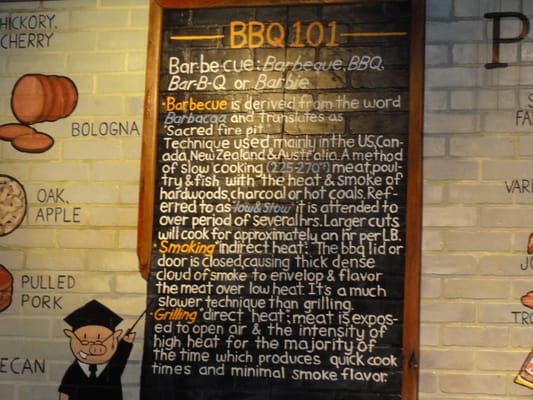 HICKORY,
CHERRY
BOLOGNA
OAK,
APPLE
PULLED
PORK
PECAN
BBQ 101
Bar·be·cue: Barbeque, BBQ,
Bar-B-Q or Barbie
·Barbecue is derived from the word
Barbacaa and translates as
'Sacred fire pit'
Technique used mainly in the US, Can-
ada, New Zealand & Australia. A method
of slow cooking (225-270°F) meat, poul-
try & fish with the heat & smoke of
hardwoods, charcoal or hot coals. Ref-
erred to as 'low & slow' it is attended to
over period of several hrs. Larger cuts
will cook for aproximately an hr per LB.
·Smoking 'indirect heat': The bbq lid or
door is closed, causing thick dense
cloud of smoke to envelop & flavor
the meat over low heat. It's a much
slower technique than grilling.
·Grilling 'direct heat': meat is expos-
ed to open air & the intensity of
high heat for the majority of
the time which produces quick cook
times and minimal smoke flavor.
P
S
FA
VARI
JO
TRO